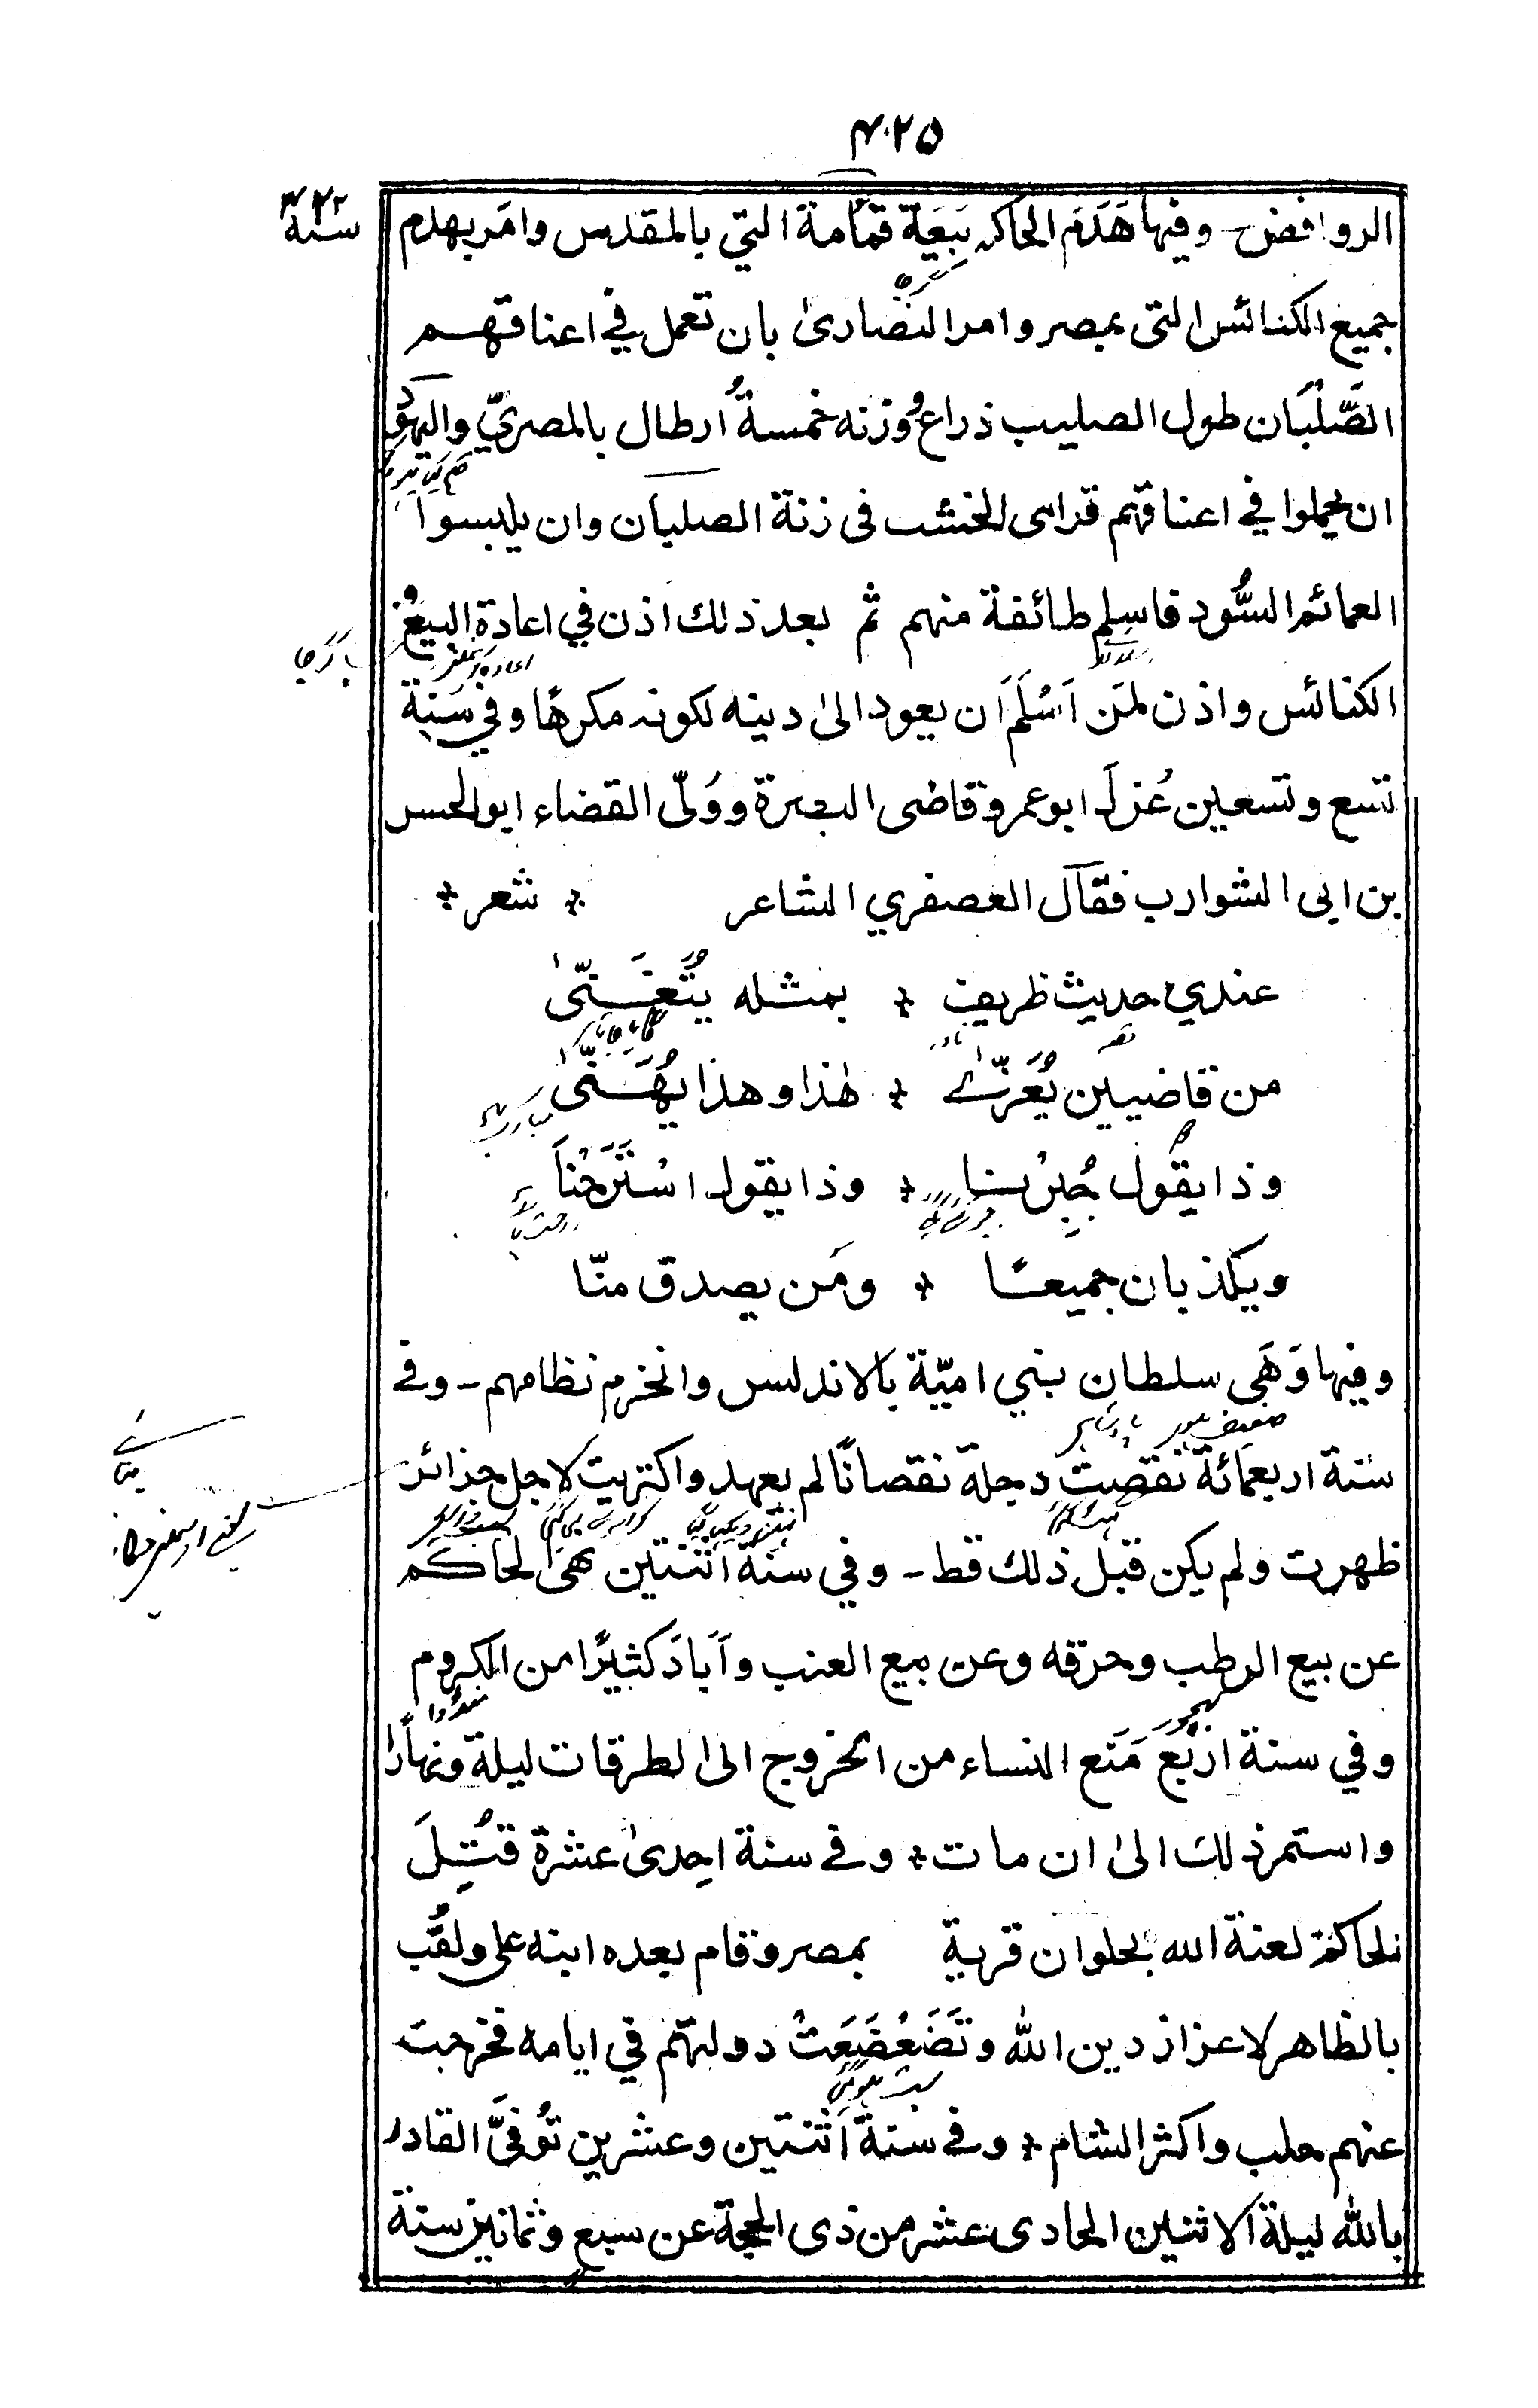 ۴۲۵
سنة ۴۲۲
الروافض - وفيها هَدَمَ الحاكم بَيعَة قمَامة التي بالمقدس وامَر بهدم
جميع الكنائس التى بمصر وامر النصارىٰ بان تعمل في اعناقهم
الصُّلْبَان طول الصليب ذراع ووزنه خمسةُ ارطال بالمصريّ واليهود
ان يحملوا في اعناقهم قرامى الخشب فى زنة الصلبان وان يلبسوا
العمائم السُّود فاسلم طائفة منهم ثم بعد ذلك اذن في اعادة البيع و
الكنائس واذن لمَن اَسْلَمَ اَن يعود الىٰ دينه لكونه مكرهًا وفي سَنة
تسع وتسعين عُزلَ ابو عمرو قاضى البصرة ووَلّى القضاء ابو الحسن
بن ابى الشوارب فقال العصفري الشاعر * شعر *
عندي حديث ظريف * بمثله يُتَغَنّىٰ
من قاضيين يُعَزّٰے * هٰذا وهذا يُهَنّىٰ
وذا يقول جُبِرْنا * وذا يقول اسْتَرَحْنَا
ويكذبان جميعًا * ومَن يصدق منّا
وفيها وَهَى سلطان بني اميّة بالاندلس وانخرم نظامهم - وفے
سنة اربعمائة نقصت دجلة نقصانًا لم يعهد واكتريت لاجل جزائر
ظهرت ولم يكن قبل ذلك قط - وفي سنة اثنتين نهَى الحاكم
عن بيع الرطب وحرقه وعن بيع العنب واَبادَ كثيرًا من الكروم
وفي سنة اربع مَنَع النساء من الخروج الى الطرقات ليلة ونهارًا
واستمر ذلك الىٰ ان مات * وفے سنة احِدىٰ عشرة قُتِلَ
الحاكم لعنة الله بحلوان قرية بمصر وقام بعده ابنه على ولقُّب
بالظاهر لاعزاز دين الله وتَضَعْضَعَتْ دولتهم في ايامه فخرجت
عنهم حلب واكثر الشام * وفے سنة اثنتين وعشرين تُوفيَّ القادر
بالله ليلة الاثنين الحادى عشر من ذى الحجة عن سبع وثمانين سنة